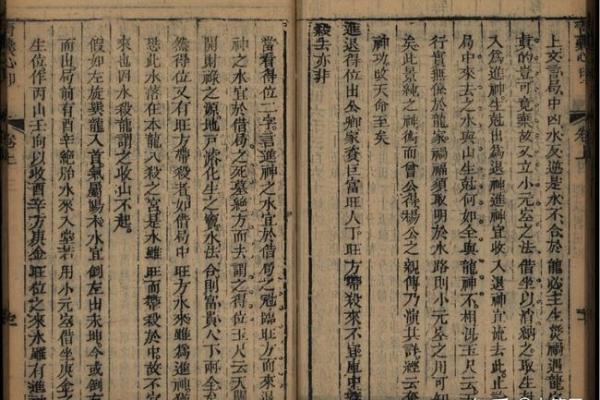 上文言局中凶水友逆是水不合於龍必主生災禍遇龍
貴的豈可棄故又立小元空之法借坐以消納之取生
入為進神生尅出為退神進神宜收入退神宜流去此上
局中來去之水與山生尅何如全與龍神不相洩玉尺云
行實無係於龍家禍福須取明於水路則小元空之用可知
矣此景純之神偽而曾公得楊公之親傳乃演其註經云奪
神功改天命至矣
進退得位出公卿家資巨富旺人丁旺方帶殺來不
殺去亦非
當看得位二字言進神之水宜於借局之冠臨旺方而來
神之水宜於借局之死墓絕方而去謂之得位玉尺云天
開財祿之源地戶
化生之竇水法合則富貴人丁兩全
然得位又有旺方帶殺者如借局中
方水來雖為進神
恐此水落在本龍入殺之宮是水雖旺而帶殺於中故不宜
來也因水殺龍謂之收山不起
假如左旋
龍入首氣屬陽木水宜倒左出未坤今或倒右
而出局前有酉辛絕胎水來入堂若用小元空借坐庚金
生位作丙山壬向以收酉辛方庚金旺位之來水雖有進神
心印
卷上